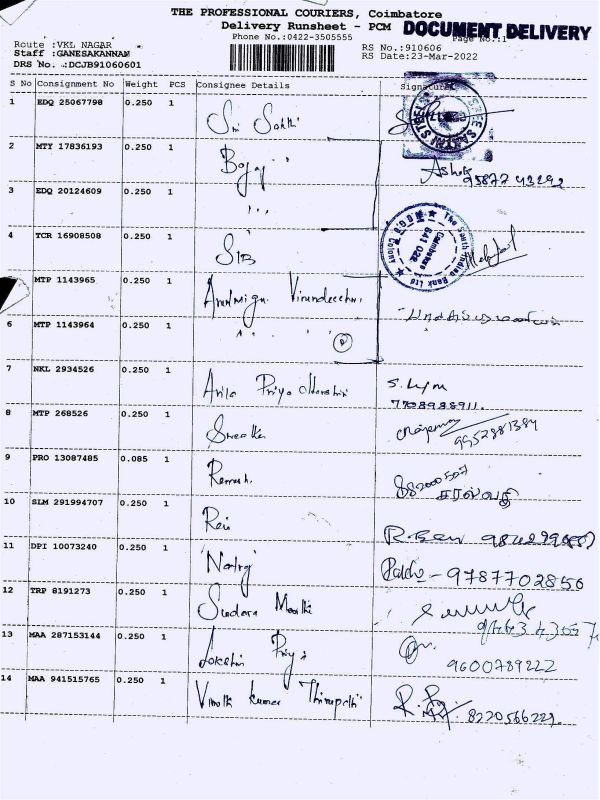 THE PROFESSIONAL COURIERS, Coimbatore
Delivery Runsheet - PCM DOCUMENT DELIVERY
Phone No.:0422-3505555 Page No.:1
Route :VKL NAGAR RS No.:910606
Staff :GANESAKANNAN RS Date:23-Mar-2022
DRS No. :DCJB91060601
S No Consignment No Weight PCS Consignee Details Signature
1 EDQ 25067798 0.250 1 Sri Sakthi
2 MTY 17836193 0.250 1 Bajaj Ashok
3 EDQ 20124609 0.250 1
4 TCR 16908508 0.250 1 SIB
The South Indian Bank Ltd
Coimbatore
641 022
MTP 1143965 0.250 1 Arulmigu
6 MTP 1143964 0.250 1
7 NKL 2934526 0.250 1 Priya
7708988911.
8 MTP 268526 0.250 1 Swetha 9952881384
9 PRO 13087485 0.085 1 Ramesh.
சரஸ்வதி
10 SLM 291994707 0.250 1 Ravi
11 DPI 10073240 0.250 1 Natraj - 9787702856
12 TRP 8191273 0.250 1 Sundara
13 MAA 287153144 0.250 1 Lakshmi Priya
9600789222
14 MAA 941515765 0.250 1 Vinoth Kumar Thirupathi 8220566229.